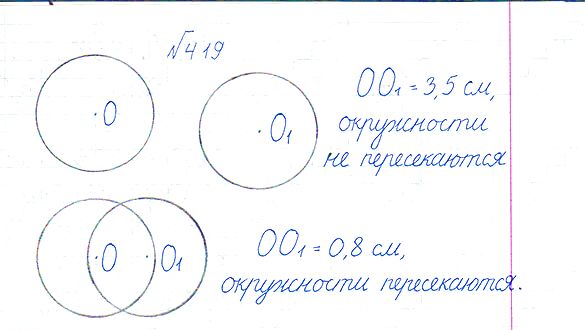 №419
O
O₁
OO₁ = 3,5 см,
окружности
не пересекаются
O
O₁
OO₁ = 0,8 см,
окружности пересекаются.